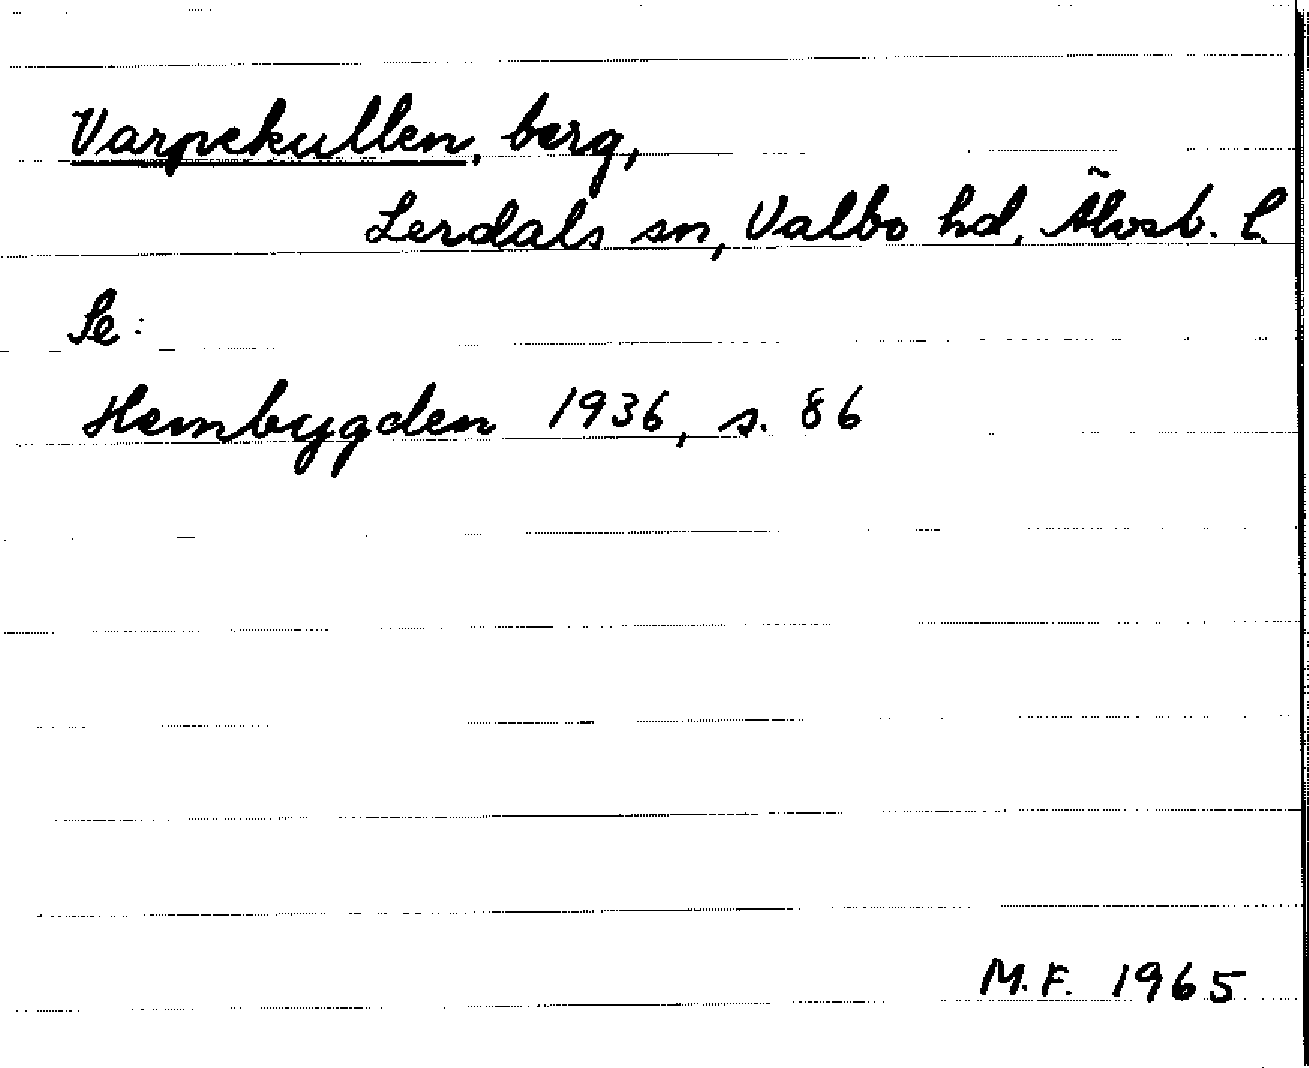 Varpekullen, berg,
Lerdals sn, Valbo hd, Älvsb. l.
Se:
Hembygden 1936, s. 86
M.F. 1965